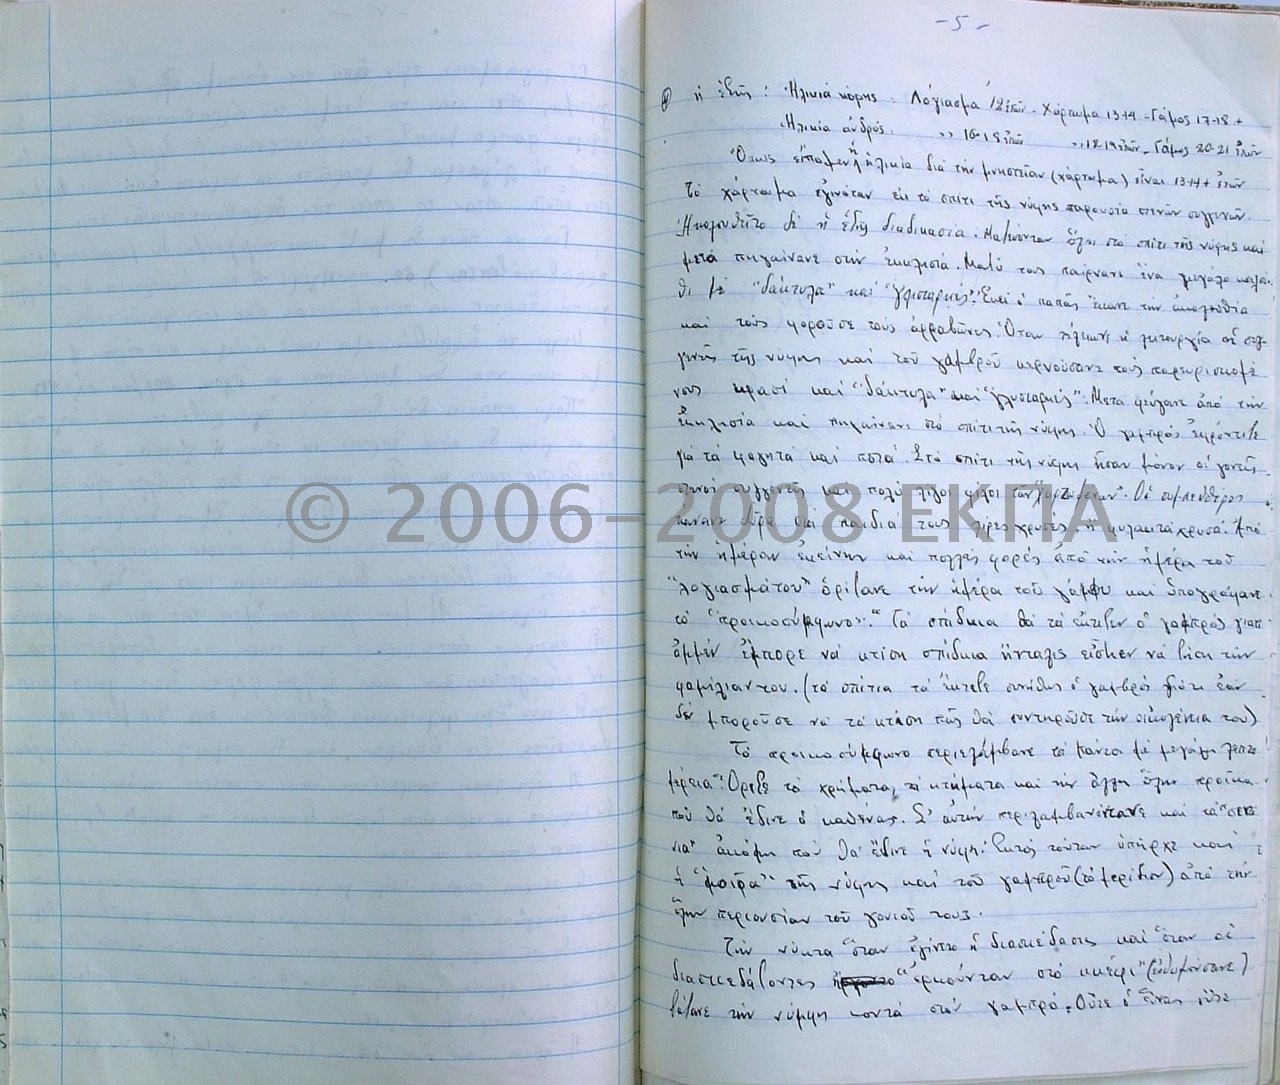 -5-
ἡ ἑξῆς: Ἡλικιά κόρης: Λόγιασμα 12 ἐτῶν. Χάρτωμα 13-14 - Γάμος 17-18 +
Ἡλικία ἀνδρός: ,, 16-18 ἐτῶν ,, 18-19 ἐτῶν - Γάμος 20-21 ἐτῶν
Ὅπως εἴπαμεν ἡ ἡλικία διά τήν μνηστείαν (χάρτωμα) εἶναι 13-14+ ἐτῶν
Τό χάρτωμα ἐγινόταν εἰς τό σπίτι τῆς νύφης παρουσία στενῶν συγγενῶν.
Ἠκολουθεῖτο δέ ἡ ἑξῆς διαδικασία. Μαζεύονταν ὅλοι στό σπίτι τῆς νύφης καί
μετά πηγαίνανε στήν ἐκκλησιά. Μαζύ τους παίρνανε ἕνα μεγάλο καλά-
θι μέ "δάκτυλα" καί "γλισταρκές". Ἐκεῖ ὁ παπᾶς ἔκανε τήν ἀκολουθία
καί τούς φοροῦσε τούς ἀρραβῶνες. Ὅταν τέλειωνε ἡ λειτουργία οἱ συγ-
γενεῖς τῆς νύφης καί τοῦ γαμβροῦ κερνούσανε τούς παρευρισκομέ
νους κρασί καί "δάκτυλα" καί "γλυσταρκές". Μετά φεύγανε ἀπό τήν
ἐκκλησία καί πηγαίνανε στό σπίτι τῆς νύφης. Ὁ γαμπρός ἐφρόντιζε
γιά τά φαγητά καί ποτά. Στό σπίτι τῆς νύφης ἦσαν μόνον οἱ γονεῖς
στενοί συγγενεῖς καί πολύ λίγοι φίλοι τῶν "χαρτωμένων". Οἱ συμπεθέροι
κάνανε δῶρα στά παιδιά τους λίρες χρυσές ἤ φυλακτά χρυσά. Ἀπό
τήν ἡμέραν ἐκείνην καί πολλές φορές ἀπό τήν ἡμέρα τοῦ
"λογιασμάτου" ὁρίζανε τήν ἡμέρα τοῦ γάμου καί ὑπογράφανε
τό "προικοσύμφωνο". "Τά σπίδκια θά τά ἔκτιζεν ὁ γαμπρός γιατί
ἀμμέν ἔμπορε νά κτίση σπίδκια ἤνταλις εἶσhεν νά ζήση τήν
φαμίλιαν του. (τά σπίτια τά ἔκτιζε συνήθως ὁ γαμβρός διότι ἐάν
δέν μποροῦσε νά τά κτίση πῶς θά συντηροῦσε τήν οἰκογένεια του)
Τό προικοσύμφωνο περιελάμβανε τά πάντα μέ μεγάλη λεπτο
μέρεια: Ὅριζε τά χρήματα, τά κτήματα καί τήν ἄλλη ὅλην προῖκα
πού θά ἔδινε ὁ καθένας. Σ' αὐτήν περιλαμβανόντανε καί τά "σεντό
νια" ἀκόμη πού θά ἔδινε ἡ νύφη. Ἐκτός τούτων ὑπῆρχε καί
ἡ "μοῖρα" τῆς νύφης καί τοῦ γαμπροῦ (τό μερίδιον) ἀπό τήν
ὅλην περιουσίαν τοῦ γονιοῦ τους.
Τήν νύκτα ὅταν ἐγίνετο ἡ διασκέδασις καί ὅταν οἱ
διασκεδάζοντες "ἐρκούνταν στό κκέφι" (εὐθυμούσανε)
βάζανε τήν νύμφη κοντά στόν γαμπρό. Οὔτε ὁ ἕνας οὔτε
© 2006–2008 ΕΚΠΑ